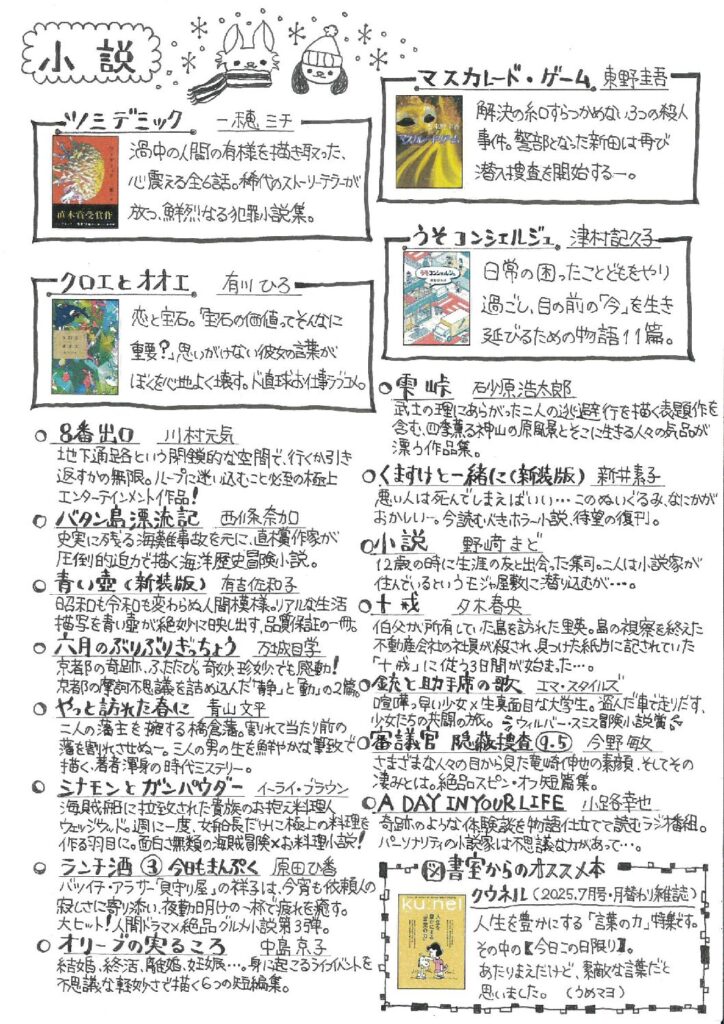 小説
ツミデミック 一穂ミチ
渦中の人間の有様を描き取った、
心震える全6話。稀代のストーリーテラーが
放つ、鮮烈なる犯罪小説集。
直木賞受賞作
クロエとオオエ 有川ひろ
恋と宝石。「宝石の価値ってそんなに
重要?」思いがけない彼女の言葉が
ぼくを心地よく壊す。ド直球お仕事ラブコメ。
8番出口 川村元気
地下通路という閉鎖的な空間で、行くか引き
返すかの無限。ループに迷い込むこと必至の極上
エンターテインメント作品!
バタン島漂流記 西條奈加
史実に残る海難事故を元に、直木賞作家が
圧倒的迫力で描く海洋歴史冒険小説。
青い壺(新装版) 有吉佐和子
昭和も令和も変わらぬ人間模様。リアルな生活
描写を青い壺が絶妙に映し出す、品質保証の一冊。
六月のぶりぶりぎっちょう 万城目学
京都の奇跡、ふたたび。奇妙、珍妙でも感動!
京都の摩訶不思議を詰め込んだ「静」と「動」の2篇。
やっと訪れた春に 青山文平
二人の藩主を擁する橋倉藩。割れて当たり前の
藩を割れさせぬ―。三人の男の生を鮮やかな筆致で
描く、著者渾身の時代ミステリー。
シナモンとガンパウダー イーライ・ブラウン
海賊船に拉致された貴族のお抱え料理人
ウェッジウッド。週に一度、女船長だけに極上の料理を
作る羽目に。面白さ無類の海賊冒険×お料理小説!
ランチ酒③今日もまんぷく 原田ひ香
バツイチ・アラサー「見守り屋」の祥子は、今宵も依頼人の
寂しさに寄り添い、夜勤明けの一杯で疲れを癒す。
大ヒット!人間ドラマ×絶品グルメ小説第3弾。
オリーブの実るころ 中島京子
結婚、終活、離婚、妊娠…。身に起こるライフイベントを
不思議な軽妙さで描く6つの短編集。
マスカレード・ゲーム 東野圭吾
解決の糸口すらつかめない3つの殺人
事件。警部となった新田は再び
潜入捜査を開始する―。
マスカレード・ゲーム
うそコンシェルジュ 津村記久子
日常の困ったことどもをやり
過ごし、目の前の「今」を生き
延びるための物語11篇。
うそコンシェルジュ
雫峠 砂原浩太郎
武士の理にあらがった二人の逃避行を描く表題作を
含む、四季薫る神山の原風景とそこに生きる人々の気品が
漂う作品集。
くますけと一緒に(新装版) 新井素子
悪い人は死んでしまえばいい…このぬいぐるみ、なにかが
おかしい―。今読むべきホラー小説、待望の復刊。
小説 野﨑まど
12歳の時に生涯の友と出会った集司。二人は小説家が
住んでいるというモジャ屋敷に潜り込むが…。
十戒 夕木春央
伯父が所有していた島を訪れた里英。島の視察を終えた
不動産会社の社員が殺され、見つけた紙片に記されていた
「十戒」に従う3日間が始まった…。
銃と助手席の歌 エマ・スタイルズ
喧嘩っ早い少女×生真面目な大学生。盗んだ車で走りだす、
少女たちの共闘の旅。ウィルバー・スミス冒険小説賞
審議官 隠蔽捜査9.5 今野敏
さまざまな人々の目から見た竜崎伸也の素顔、そしてその
凄みとは。絶品スピン・オフ短篇集。
A DAY IN YOUR LIFE 小路幸也
奇跡のような体験談を物語仕立てで読むラジオ番組。
パーソナリティの小説家は不思議な力があって…。
図書室からのオススメ本
クウネル(2025.7月号・月替わり雑誌)
人生を豊かにする「言葉の力」特集です。
その中の【今日この日限り】。
あたりまえだけど、素敵な言葉だと
思いました。(うめマヨ)
ku:nel